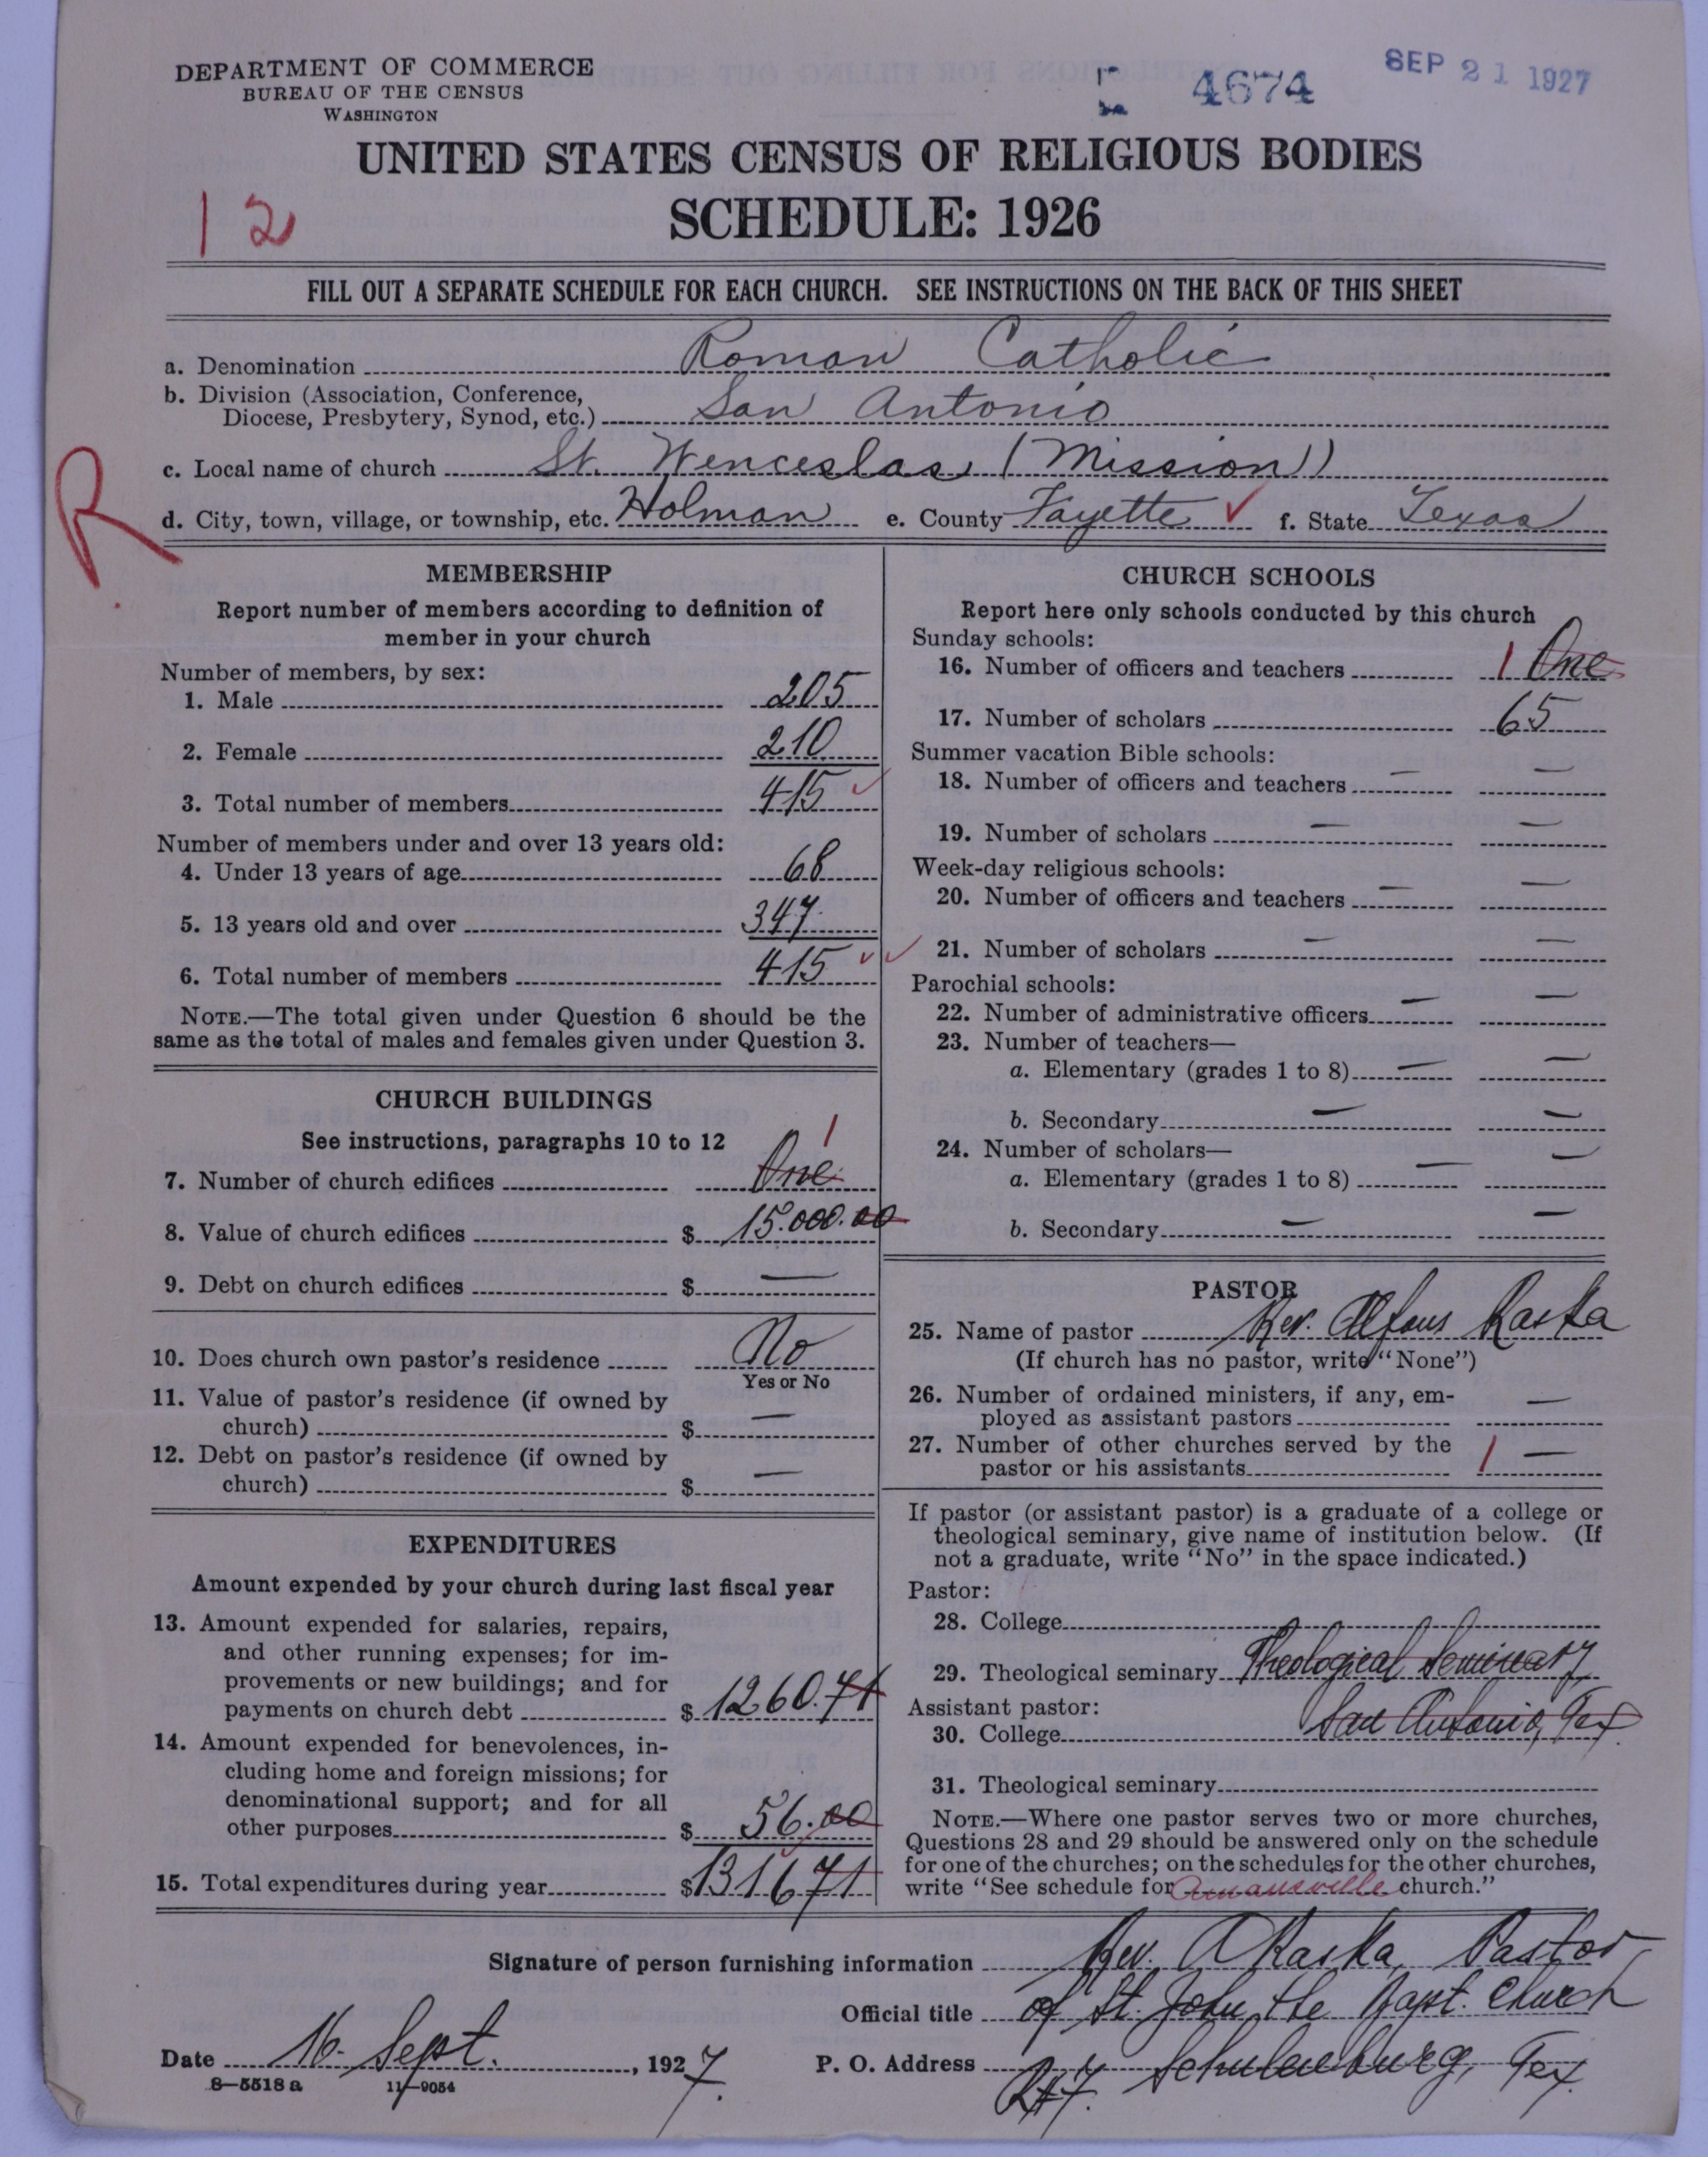 DEPARTMENT OF COMMERCE
BUREAU OF THE CENSUS
WASHINGTON
4674
SEP 21 1927
UNITED STATES CENSUS OF RELIGIOUS BODIES
12
SCHEDULE: 1926
FILL OUT A SEPARATE SCHEDULE FOR EACH CHURCH. SEE INSTRUCTIONS ON THE BACK OF THIS SHEET
a. Denomination Roman Catholic
b. Division (Association, Conference,
Diocese, Presbytery, Synod, etc.) San Antonio
c. Local name of church St. Wenceslas (Mission)
R
d. City, town, village, or township, etc. Holman e. County Fayette ✓ f. State Texas
MEMBERSHIP
Report number of members according to definition of
member in your church
Number of members, by sex:
1. Male 205
2. Female 210
3. Total number of members 415 ✓
Number of members under and over 13 years old:
4. Under 13 years of age 68
5. 13 years old and over 347
6. Total number of members 415 ✓✓
NOTE.—The total given under Question 6 should be the
same as the total of males and females given under Question 3.
CHURCH BUILDINGS
See instructions, paragraphs 10 to 12
1
7. Number of church edifices One
8. Value of church edifices $ 15.000.00
9. Debt on church edifices $ —
10. Does church own pastor's residence No
Yes or No
11. Value of pastor's residence (if owned by
church) $ —
12. Debt on pastor's residence (if owned by
church) $ —
EXPENDITURES
Amount expended by your church during last fiscal year
13. Amount expended for salaries, repairs,
and other running expenses; for im-
provements or new buildings; and for
payments on church debt $ 1260.71
14. Amount expended for benevolences, in-
cluding home and foreign missions; for
denominational support; and for all
other purposes $ 56.00
15. Total expenditures during year $ 1316 71
CHURCH SCHOOLS
Report here only schools conducted by this church
Sunday schools:
16. Number of officers and teachers 1 One
17. Number of scholars 65
Summer vacation Bible schools:
18. Number of officers and teachers — —
19. Number of scholars — —
Week-day religious schools:
20. Number of officers and teachers — —
21. Number of scholars — —
Parochial schools:
22. Number of administrative officers — —
23. Number of teachers—
a. Elementary (grades 1 to 8) — —
b. Secondary — —
24. Number of scholars—
a. Elementary (grades 1 to 8) — —
b. Secondary — —
PASTOR
25. Name of pastor Rev. Alfons Raska
(If church has no pastor, write "None")
26. Number of ordained ministers, if any, em-
ployed as assistant pastors —
27. Number of other churches served by the
pastor or his assistants 1 —
If pastor (or assistant pastor) is a graduate of a college or
theological seminary, give name of institution below. (If
not a graduate, write "No" in the space indicated.)
Pastor:
28. College
29. Theological seminary Theological Seminary
Assistant pastor:
San Antonio, Tex.
30. College
31. Theological seminary
NOTE.—Where one pastor serves two or more churches,
Questions 28 and 29 should be answered only on the schedule
for one of the churches; on the schedules for the other churches,
write "See schedule for Ammansville church."
Signature of person furnishing information Rev. A Raska, Pastor
Official title of St. John the Bapt. Church
Date 16. Sept. , 1927. P. O. Address R#7. Schulenburg, Tex.
8—5518 a 11—9054